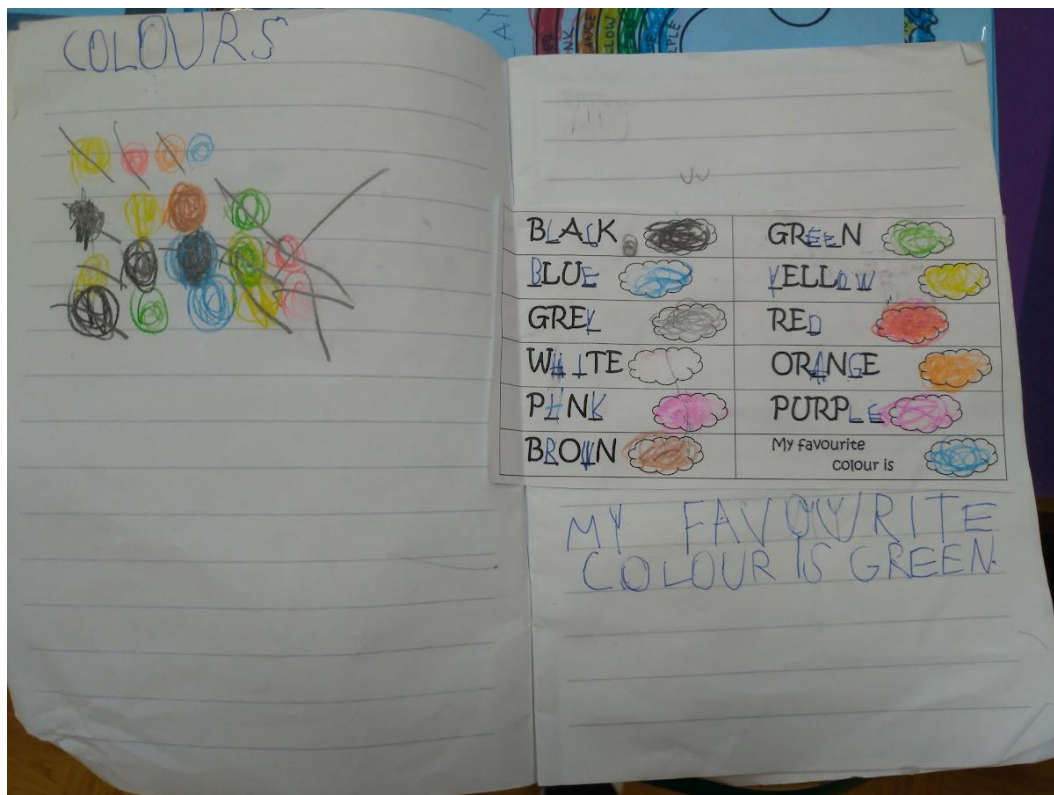 COLOURS
BLACK
GREEN
BLUE
YELLOW
GREY
RED
WHITE
ORANGE
PINK
PURPLE
BROWN
My favourite
colour is
MY FAVOURITE
COLOUR IS GREEN.